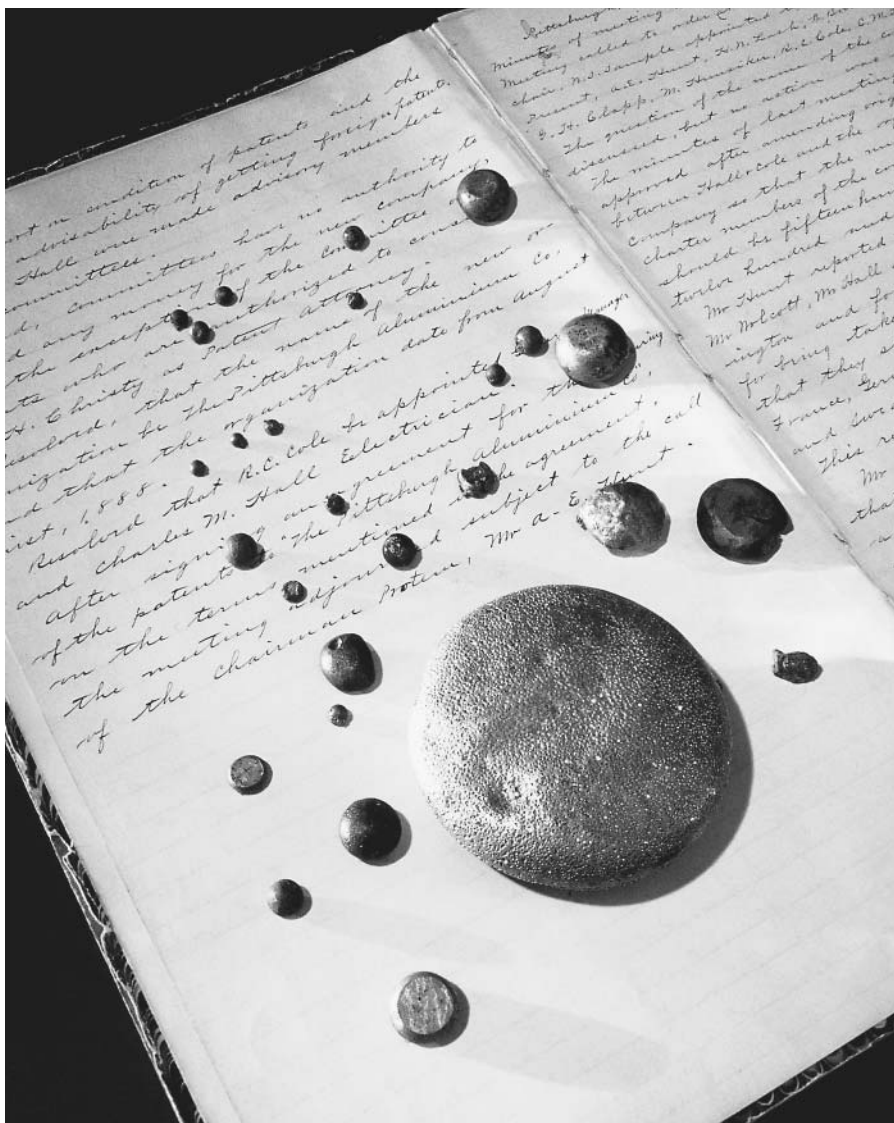 on condition of patents and the
advisability of getting foreign patents.
Hall were made advisory members
committees.
committees has no authority to
any money for the new company,
the exception of the committee
who are authorized to
H. Christy as Patent Attorney.
Resolved, that the name of the new or
nization be The Pittsburgh Aluminium Co,
d that the organization date from August
irst, 1888.
Resolved that R.C. Cole be appointed Manager
and Charles M. Hall Electrician.
After signing an agreement for the
of the patents to "The Pittsburgh Aluminium Co",
on the terms mentioned in the agreement,
the meeting adjourned subject to the call
of the chairman Protem, Mr A. E. Hunt.
Pittsburgh,
Minutes of meeting
Meeting called to order
chair, W.S. Sample appointed
Present, A.E. Hunt, H.N. Lash,
G. H. Clapp, M. Hunsiker, R.C. Cole, C.M.
The question of the name of the co
discussed, but no action was
The minutes of last meeting
approved after amending
between Hall & Cole and the
Company so that the
charter members of the co
should be fifteen hun
twelve hundred and
Mr Hunt reported
Mr Wolcott, Mr Hall
ington and
for being take
that they
France, Ger
and Swe
This re
Mr
tha
a